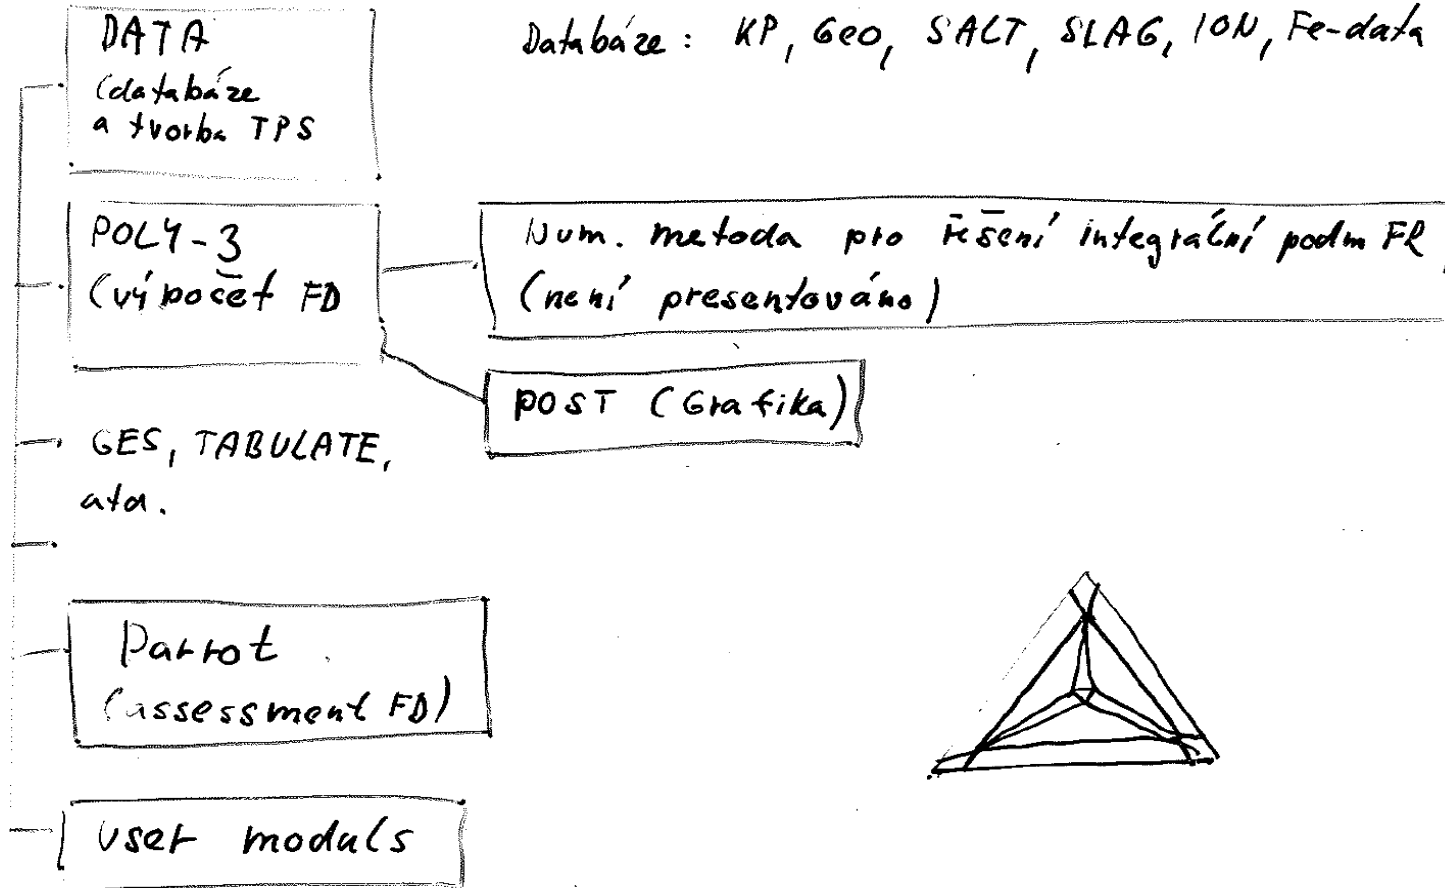 DATA
(databáze
a tvorba TPS
Databáze: KP, Geo, SALT, SLAG, ION, Fe-data
POLY-3
(výpočet FD
Num. metoda pro řešení integrační podm FR
(není presentováno)
POST (Grafika)
GES, TABULATE,
atd.
Parrot
(assessment FD)
user moduls